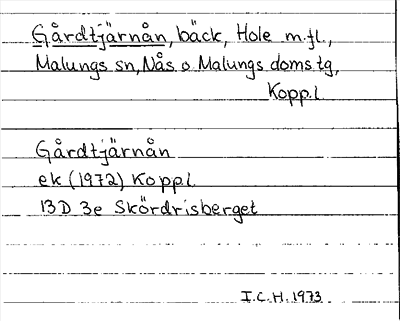 Gårdtjärnån, bäck, Hole m.fl.,
Malungs sn, Nås o Malungs doms.tg,
Kopp.l
Gårdtjärnån
ek (1972) Kopp.l.
13D 3e Skördrisberget
I.C.H. 1973